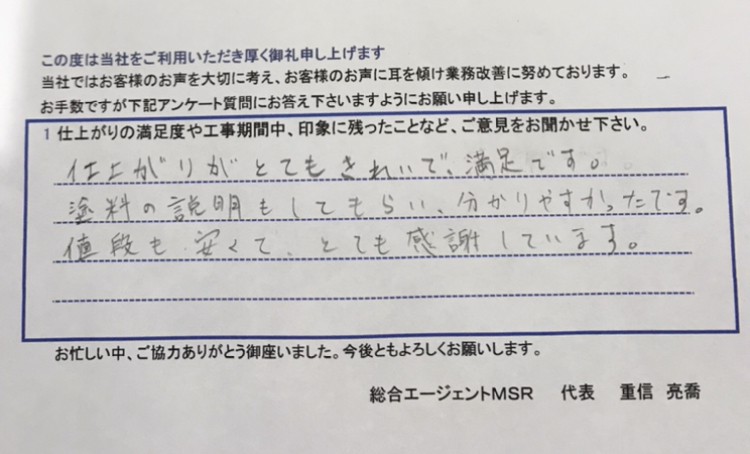 この度は当社をご利用いただき厚く御礼申し上げます
当社ではお客様のお声を大切に考え、お客様のお声に耳を傾け業務改善に努めております。
お手数ですが下記アンケート質問にお答え下さいますようにお願い申し上げます。
1 仕上がりの満足度や工事期間中、印象に残ったことなど、ご意見をお聞かせ下さい。
仕上がりがとてもきれいで、満足です。
塗料の説明もしてもらい、分かりやすかったです。
値段も安くて、とても感謝しています。
お忙しい中、ご協力ありがとう御座いました。今後ともよろしくお願いします。
総合エージェントMSR 代表 重信 亮喬